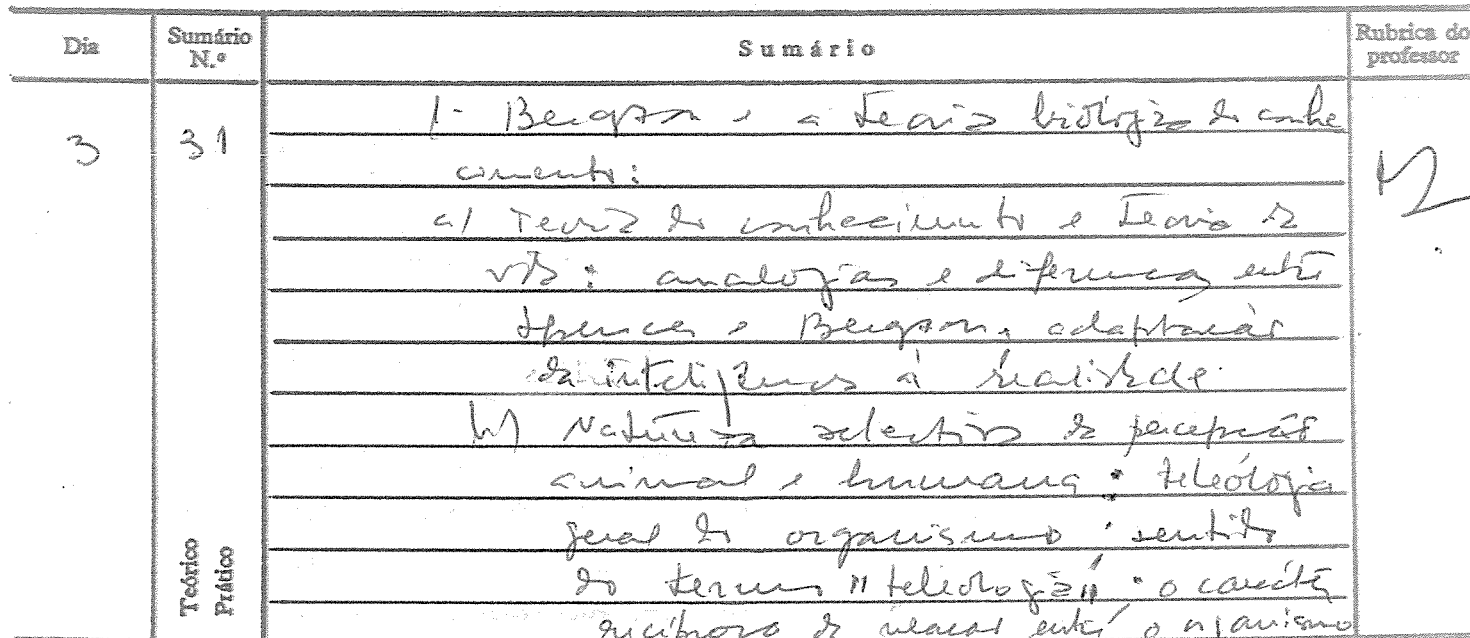 Dia
Sumário N.º
Sumário
Rubrica do professor
3
31
1- Bergson e a teoria biológica do conhe
cimento:
a) Teoria do conhecimento e teoria da
vida: analogias e diferenças entre
Spencer e Bergson, adaptação
da inteligência à realidade.
b) Natureza selectiva da percepção
animal e humana: teleologia
geral do organismo: sentido
do termo "teleologia": o carácter
recíproco da relação entre o organismo
Teórico
Prático